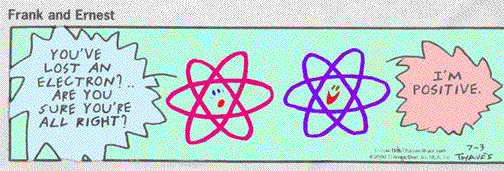 Frank and Ernest
YOU'VE
LOST AN
ELECTRON?..
ARE YOU
SURE YOU'RE
ALL RIGHT?
I'M
POSITIVE.
7-3
THAVES